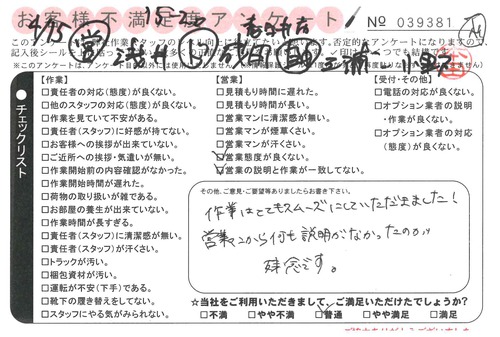 お客様不満足度アンケート
15-
No 039381
4/15 営
助
【作業】
□責任者の対応(態度)が良くない。
□他のスタッフの対応(態度)が良くない。
□作業を見ていて不安がある。
□責任者(スタッフ)に好感が持てない。
□お客様への挨拶が出来ていない。
□ご近所への挨拶・気遣いが無い。
□作業開始前の内容確認がなかった。
□作業開始時間が遅れた。
□荷物の取り扱いが雑である。
□お部屋の養生が出来ていない。
□作業時間が長すぎる。
□責任者(スタッフ)に清潔感が無い。
□責任者(スタッフ)が汗くさい。
□トラックが汚い。
□梱包資材が汚い。
□運転が不安(下手)である。
□靴下の履き替えをしてない。
□スタッフにやる気がみられない。
チェックリスト
【営業】
□見積もり時間に遅れた。
□見積もり時間が長い。
□営業マンに清潔感が無い。
□営業マンが煙草くさい。
□営業マンが汗くさい。
□営業態度が良くない。
□営業の説明と作業が一致してない。
【受付・その他】
□電話の対応が良くない。
□オプション業者の説明
・作業が良くない。
□オプション業者の対応
(態度)が良くない。
その他、ご意見・ご要望等ありましたらお書き下さい。
作業はとてもスムーズにしていただきました!
営業マンから何も説明がなかったのが
残念です。
☆当社をご利用いただきまして、ご満足いただけたでしょうか?
□不満 □やや不満 □普通 □やや満足 □満足